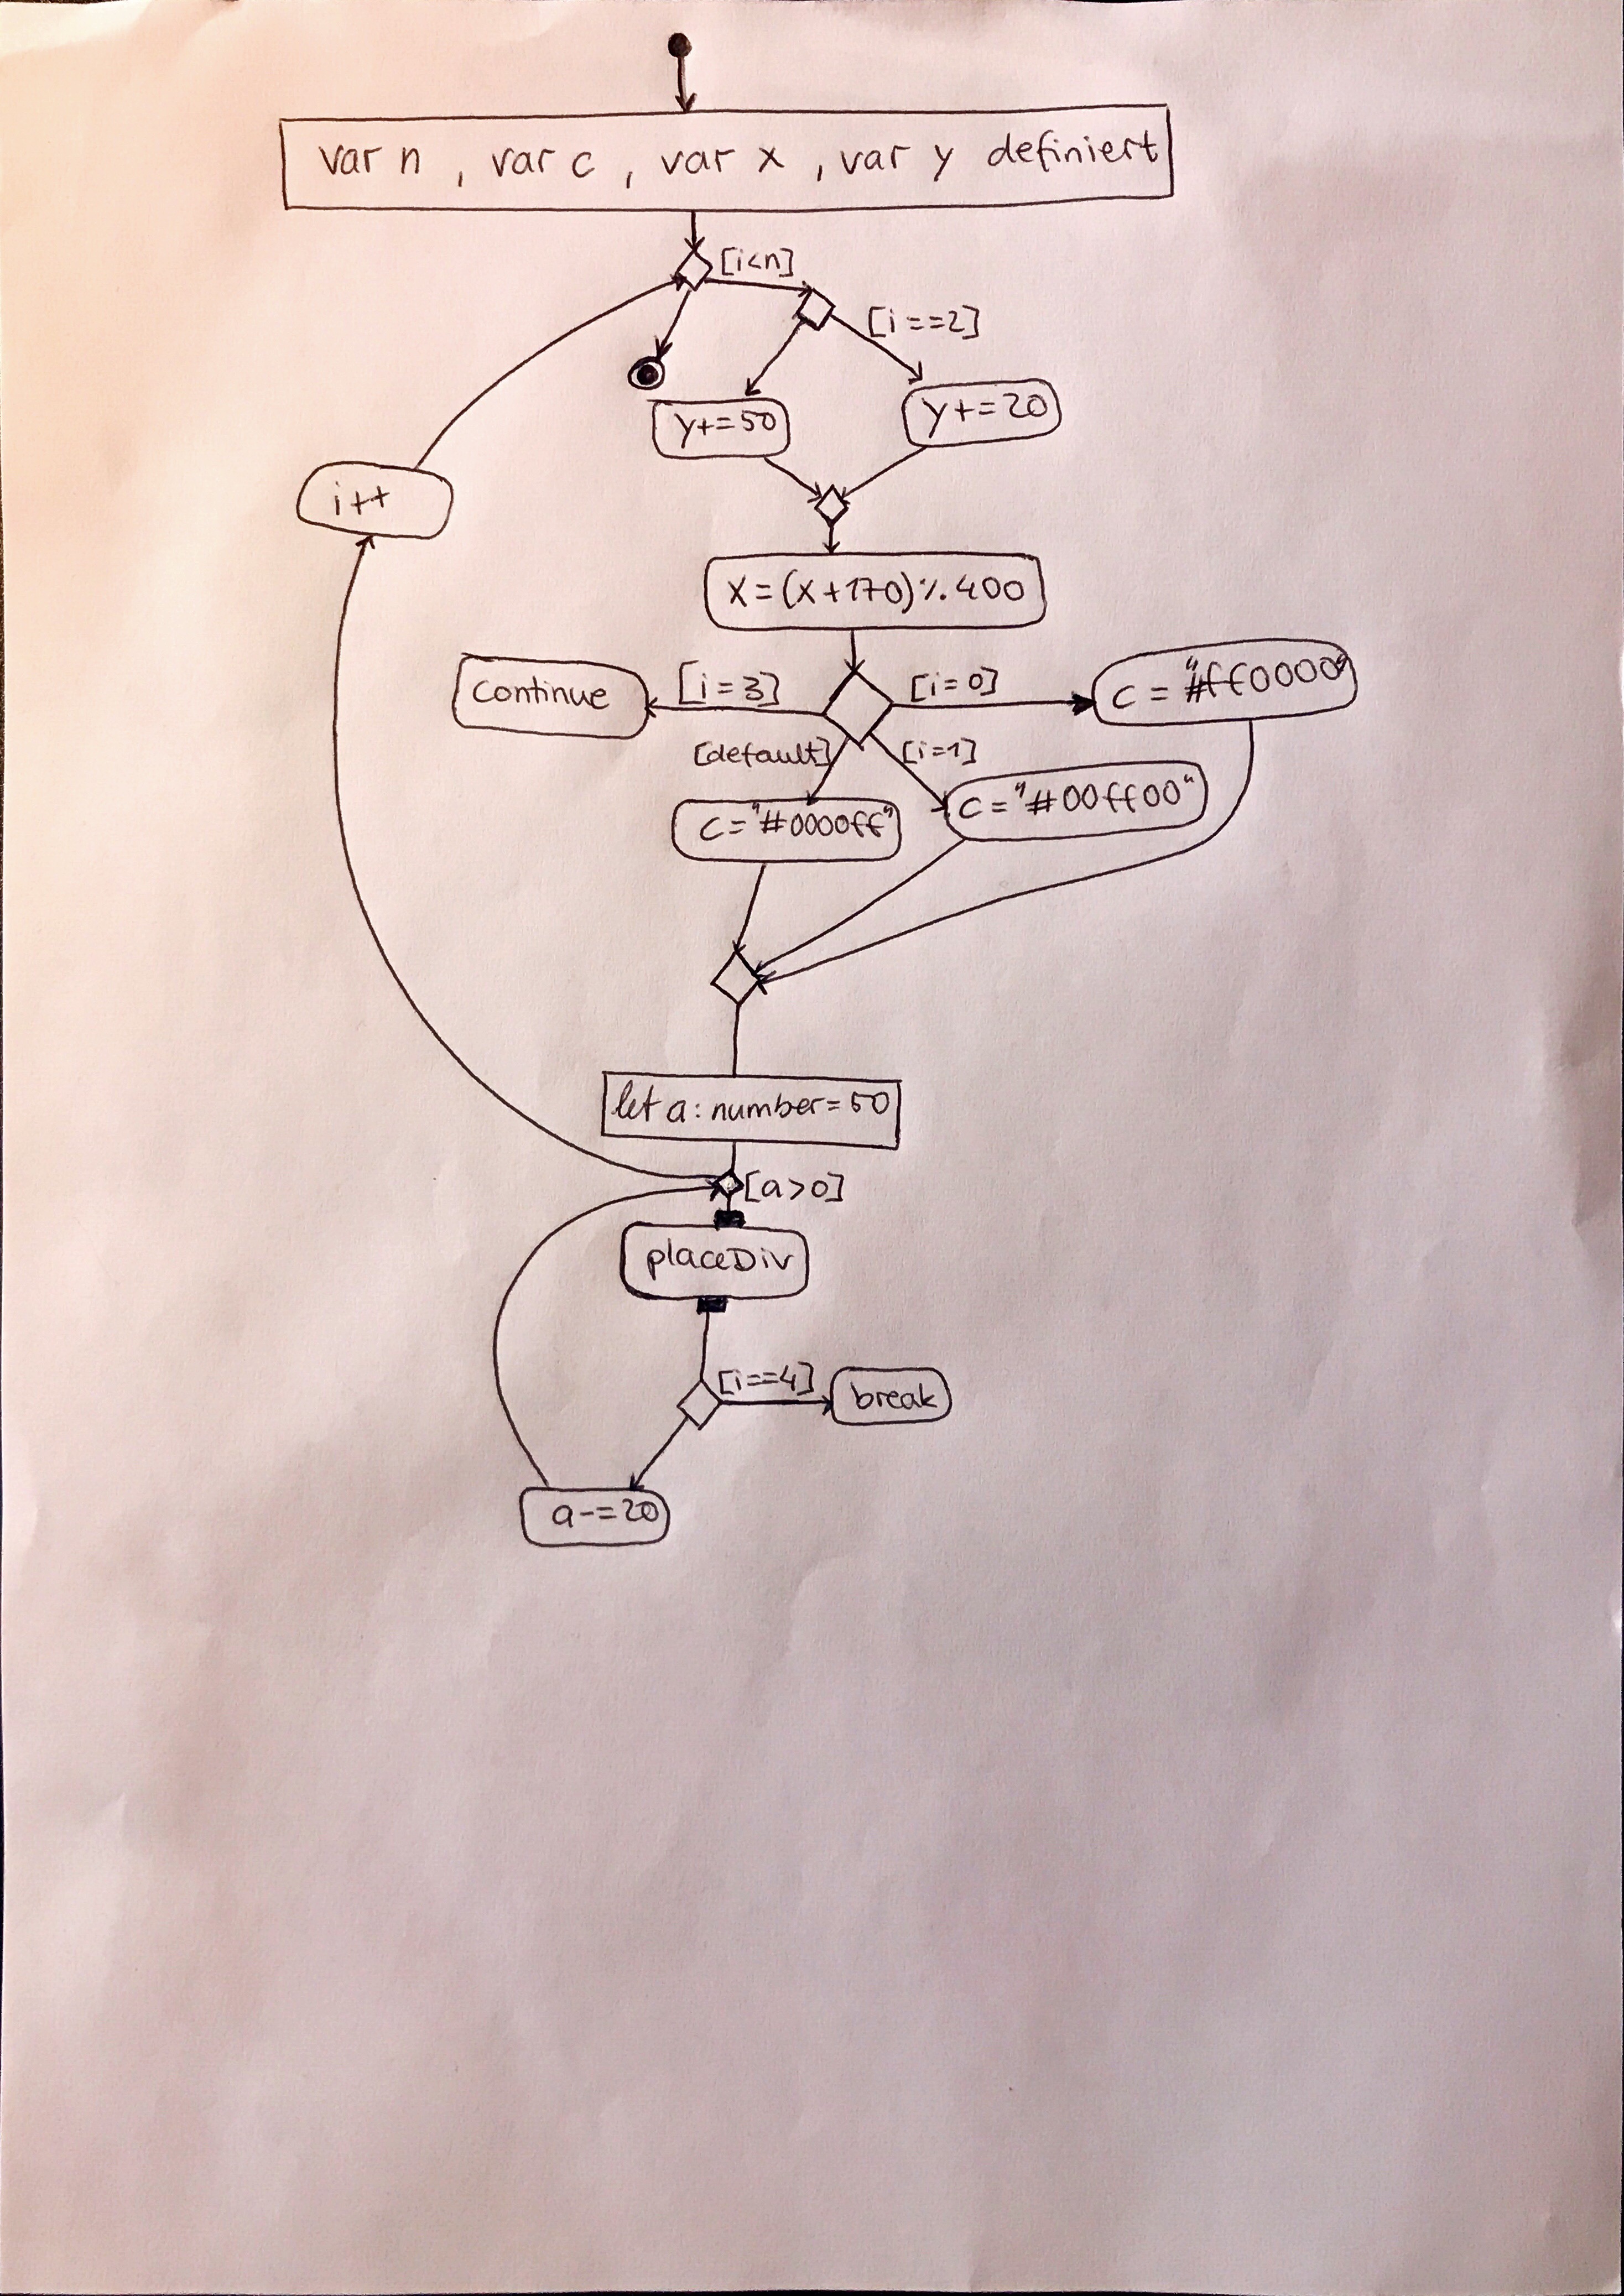 var n , var c , var x , var y definiert
[i<n]
[i==2]
y+=50
y+=20
i++
x=(x+170)%400
continue
[i=3]
[i=0]
c = "#ff0000"
[default]
[i=1]
c="#0000ff"
c="#00ff00"
let a: number=50
[a>0]
placeDiv
[i==4]
break
a-=20